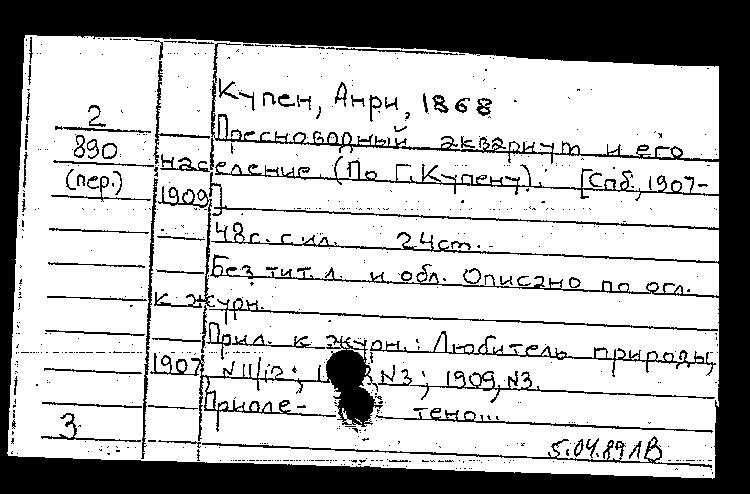 Купен, Анри, 1868
2
Пресноводный аквариум и его
890
население (По Г. Купену). [Спб., 1907-
(пер.)
1909].
48 с. с ил. 24 ст.
Без тит. л. и обл. Описано по огл.
к журн.
Прил. к журн.: Любитель природы,
1907, N 11/12; N3; 1909, N3.
3
5.04.89 ЛВ